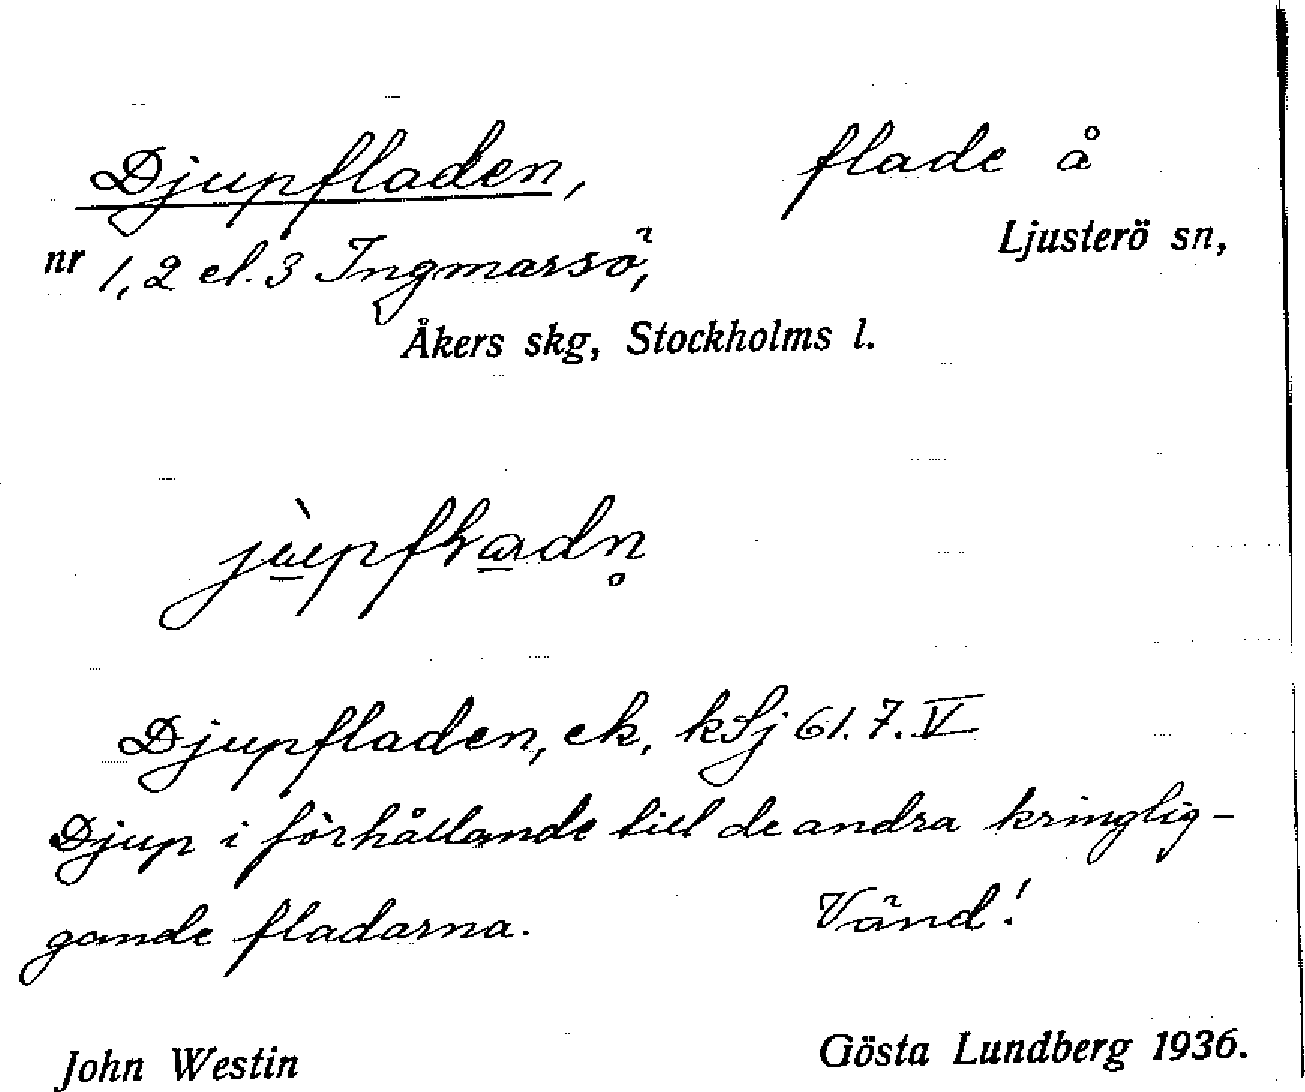 Djupfladen, flade å
Ljusterö sn,
nr 1, 2 el. 3 Ingmarsö,
Åkers skg, Stockholms l.
Djupfladen, ek, kSj 61.7.V
Djup i förhållande till de andra kringlig-
gande fladarna. Vänd!
John Westin Gösta Lundberg 1936.